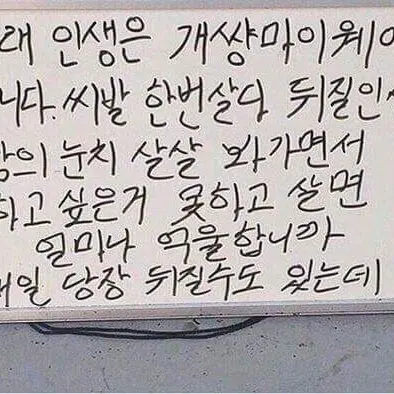 래 인생은 개썅마이웨이
니다. 씨발 한번살다 뒤질인
의 눈치 살살 봐가면서
하고 싶은거 못하고 살면
얼마나 억울합니까
내일 당장 뒤질수도 있는데